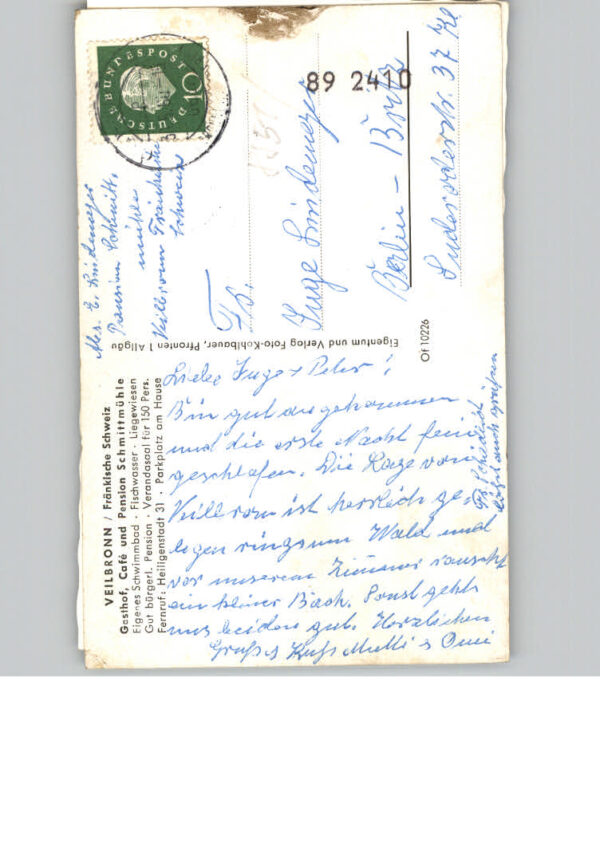 VEILBRONN / Fränkische Schweiz
Gasthof, Café und Pension Schmittmühle
Eigenes Schwimmbad · Fischwasser · Liegewiesen
Gut bürgerl. Pension · Verandasaal für 150 Pers.
Fernruf: Heiligenstadt 31 · Parkplatz am Hause
Inge + Peter!
Bin gut angekommen
und die erste Nacht fein
geschlafen. Die Lage von
Veilbronn ist herrlich ge-
legen ringsum Wald und
vor unserem Zimmer rauscht
ein kleiner Bach. Sonst gehts
uns beiden gut. Herzlichen
Gruß & Kuß Mutti & Omi
läßt auch grüßen
Eigentum und Verlag Foto-Kohlbauer, Pfronten 1 Allgäu
Of 10226
Pension Schmitt-
mühle
Veilbronn Fränkische
Schweiz
DEUTSCHE BUNDESPOST
10
89 2410
Fr.
Inge
Berlin - Britz
37